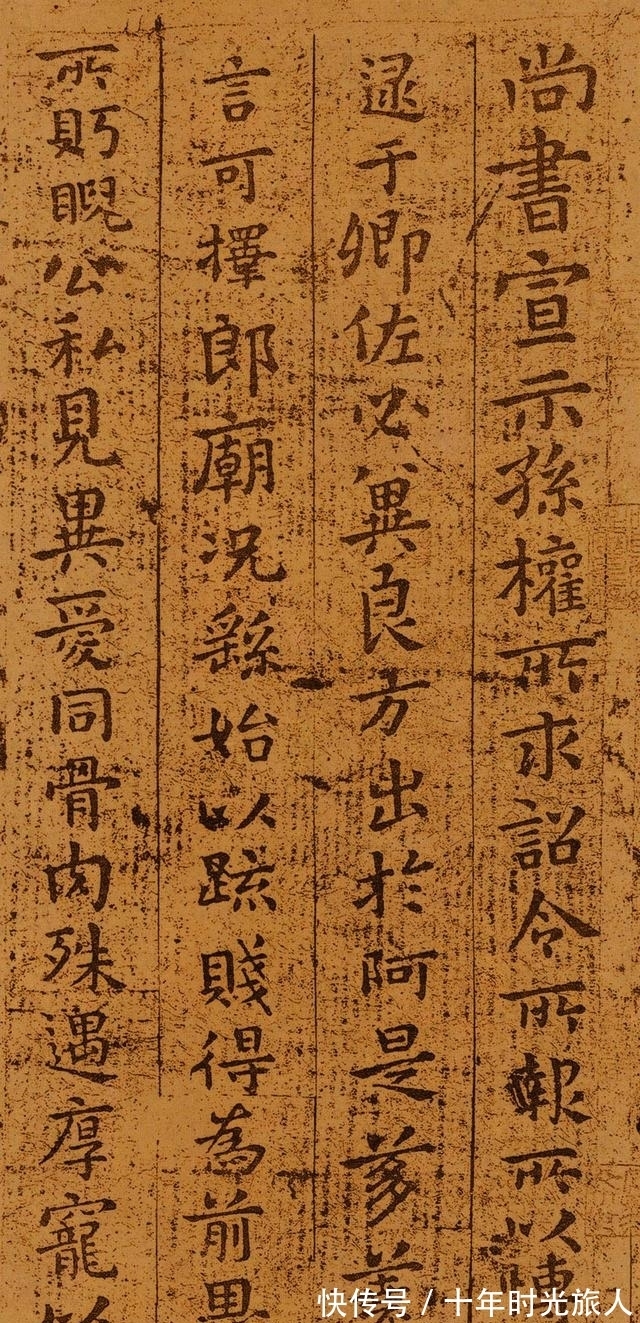 尚書宣示孫權所求詔令所報所以
逮于卿佐必冀良方出於阿是芻
言可擇郎廟況繇始以疏賤得為前
所眄睨公私見異愛同骨肉殊遇厚寵
快传号 / 十年时光旅人